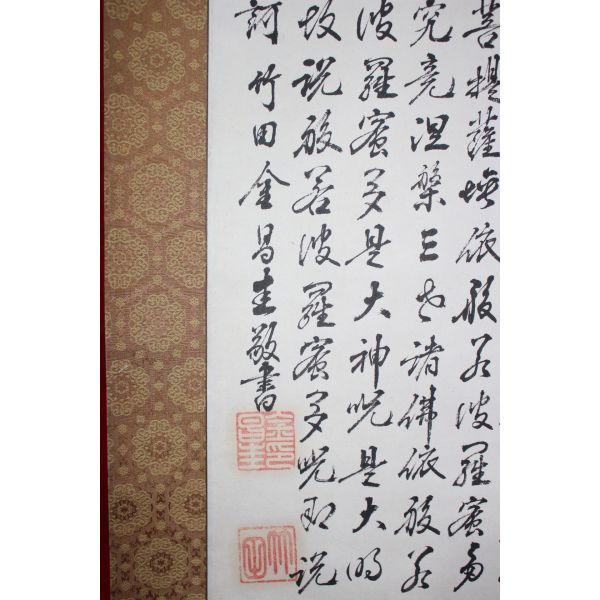 菩提薩埵依般若波羅蜜多
究竟涅槃三世諸佛依般若
波羅蜜多是大神呪是大明
故說般若波羅蜜多呪即說
訶 竹田金昌圭敬書
竹田